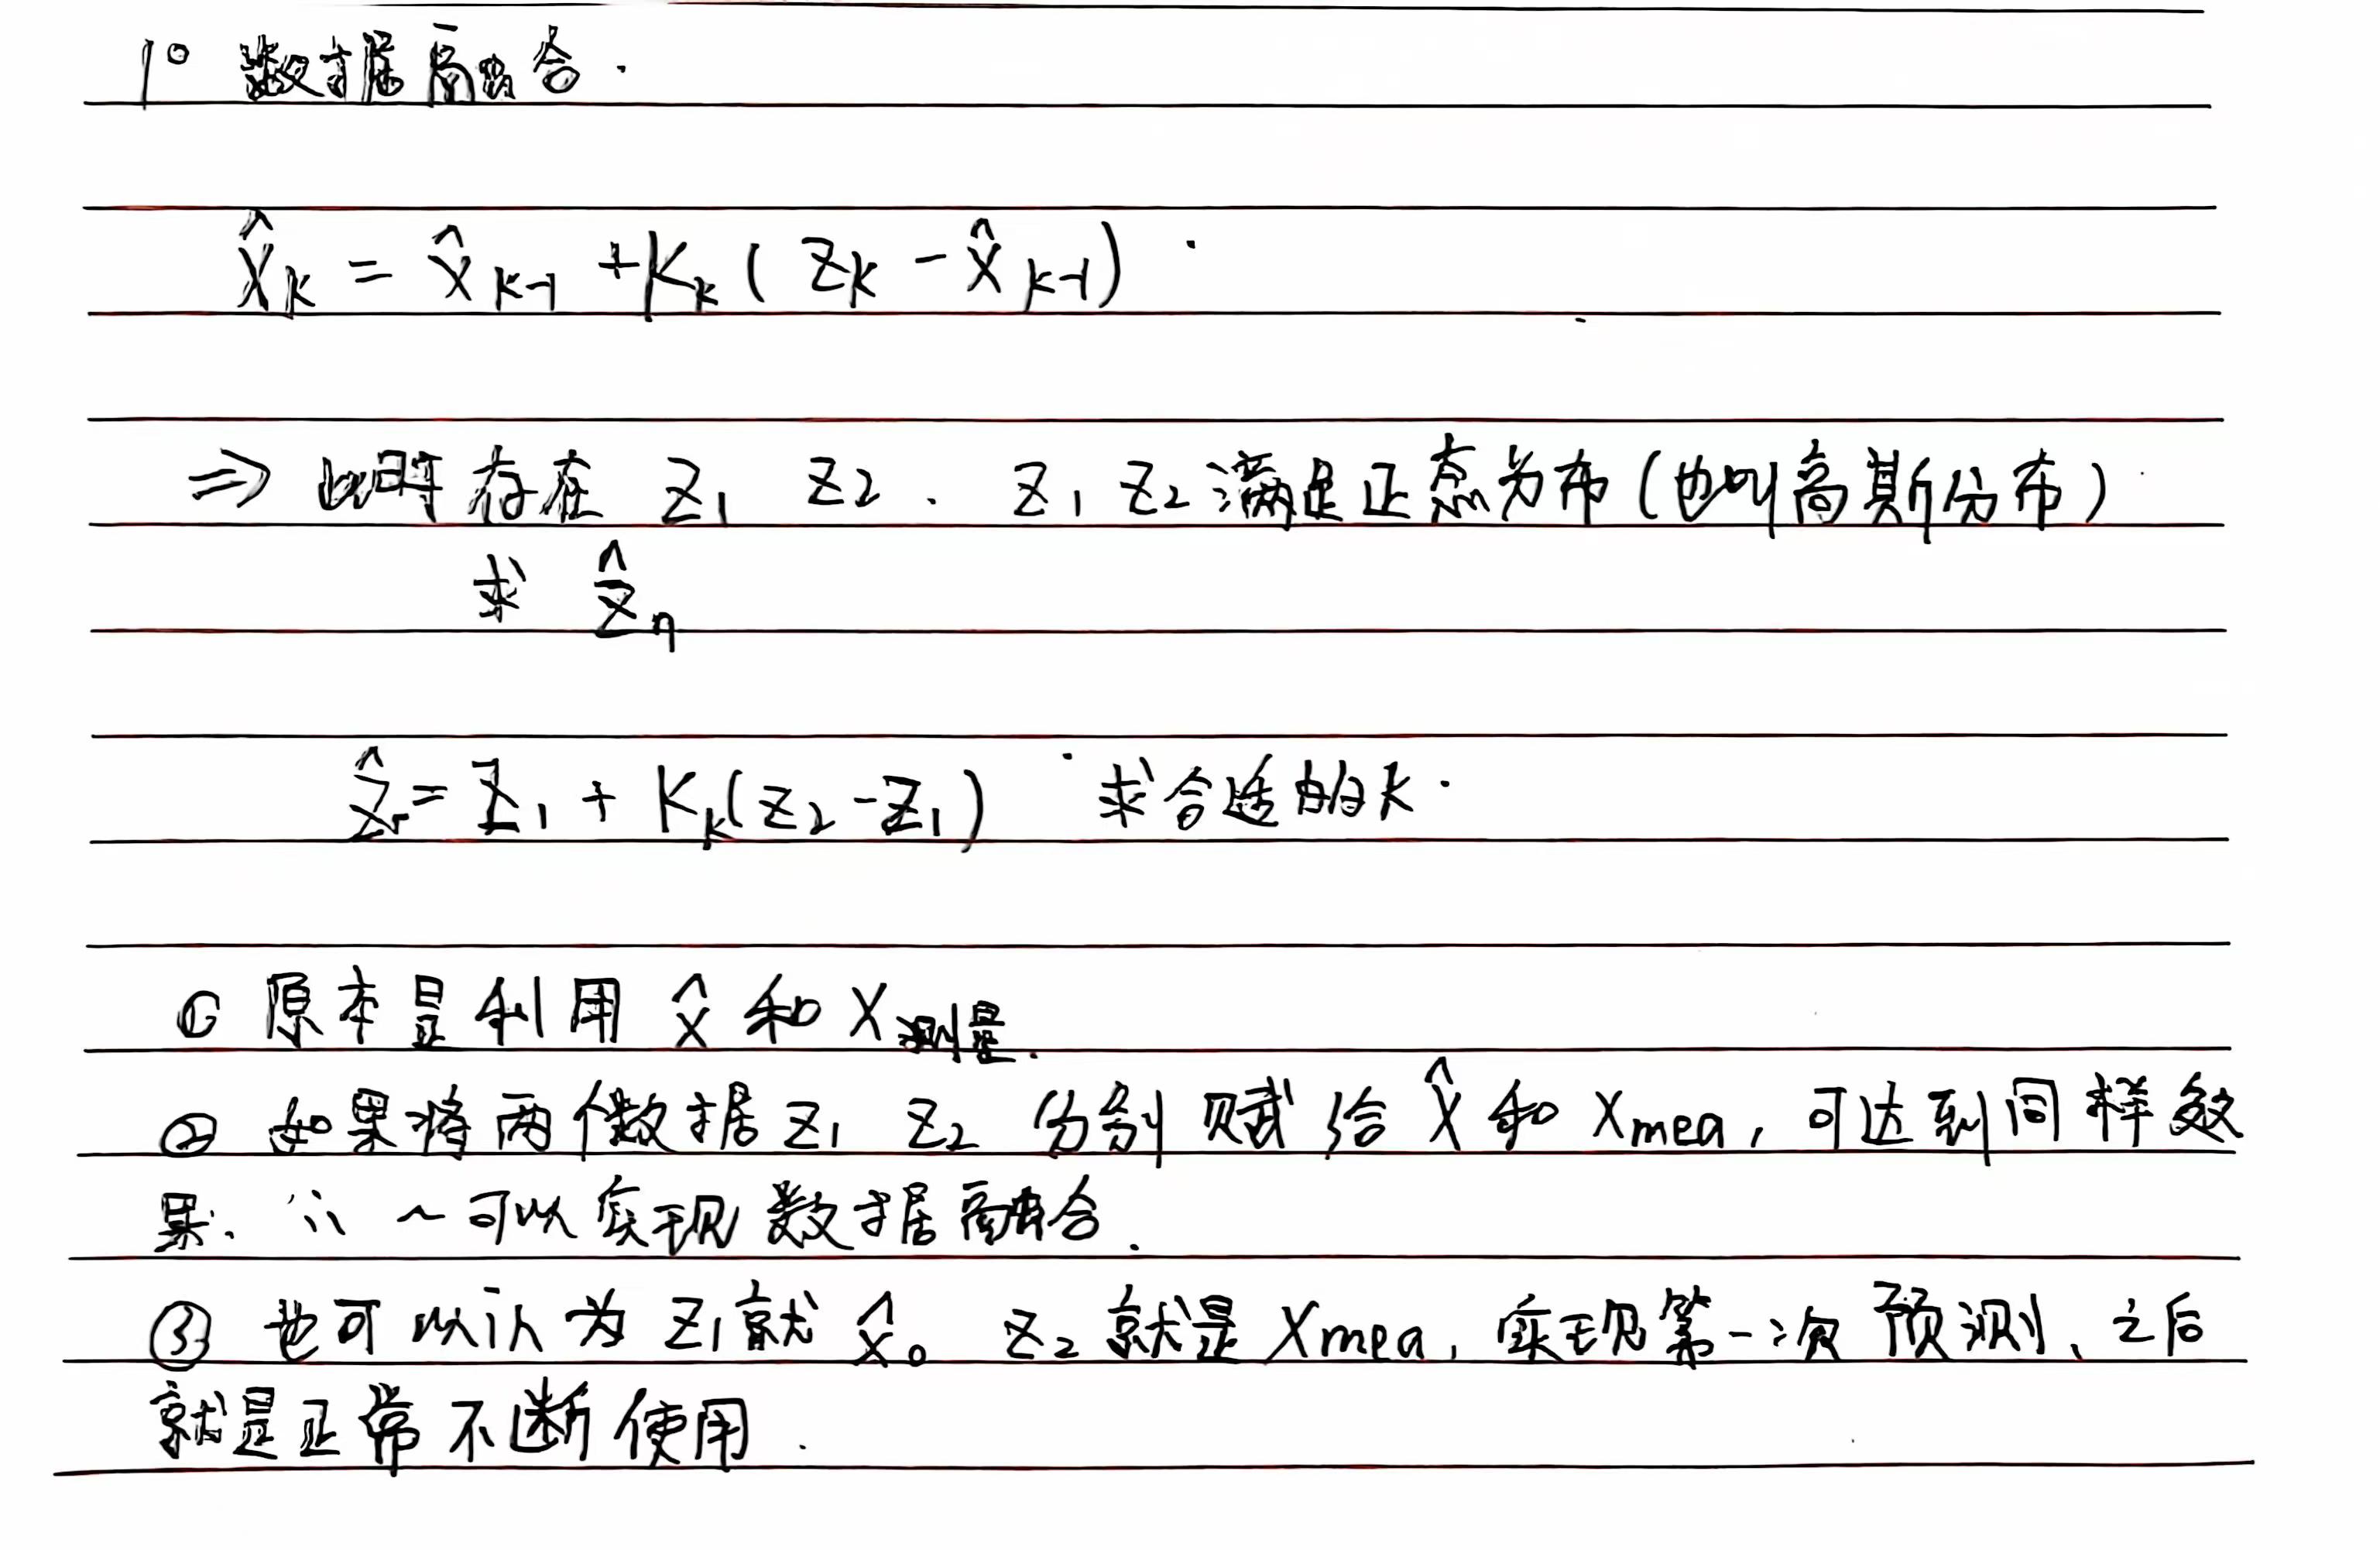 1° 数据融合.
X̂k = X̂k-1 + Kk ( Zk - X̂k-1 )
⇒ 此时存在 Z1 Z2 . Z1 Z2 满足正态分布 (也叫高斯分布)
求 Ẑn
Ẑ = Z1 + Kk(Z2 - Z1) 求合适的k.
① 原本是利用 X̂ 和 X测量.
② 如果将两个数据 Z1 Z2 分别赋给 X̂ 和 Xmea, 可达到同样效
果. ∴ ~可以实现数据融合.
③ 也可以认为 Z1就 X̂0 Z2 就是 Xmea, 实现第一次预测、之后
就是正常不断使用.